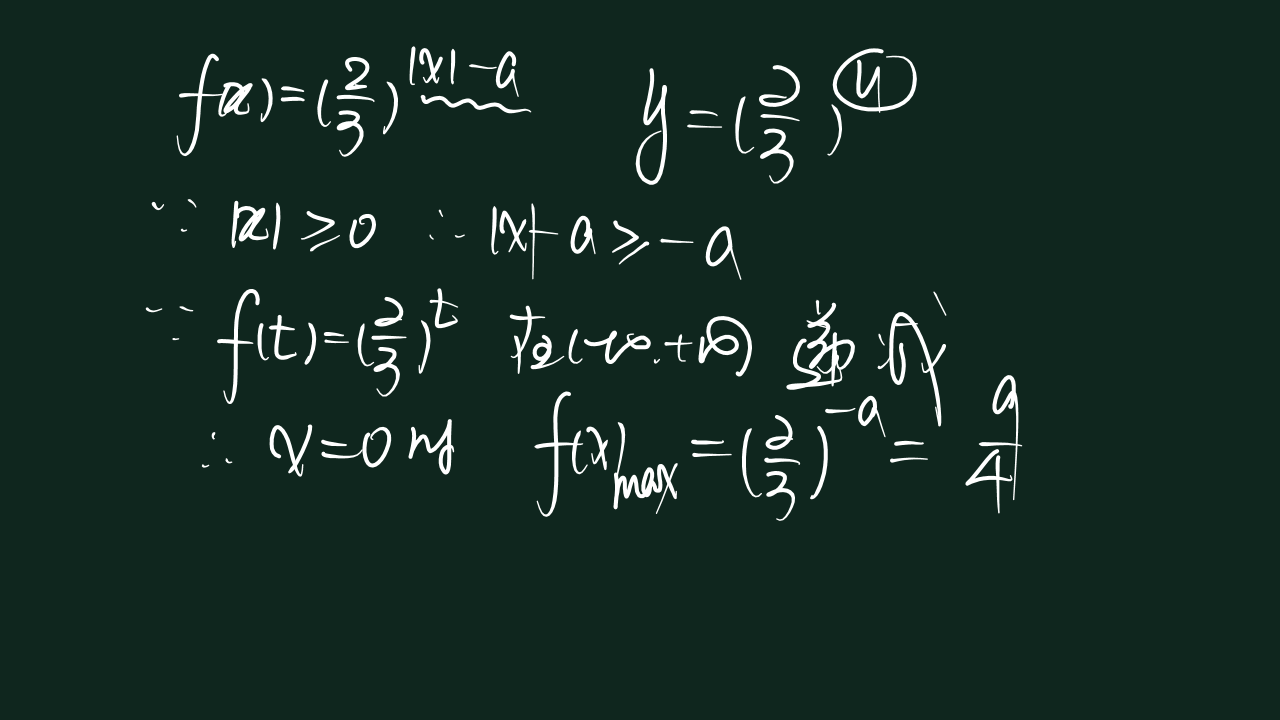 f(x)=(2/3)^{|x|-a} y=(2/3)^{u}
∵ |x|≥0 ∴ |x|-a≥-a
∵ f(t)=(2/3)^{t} 在(-∞,+∞) 递减
∴ x=0时 f(x)max=(2/3)^{-a}=9/4